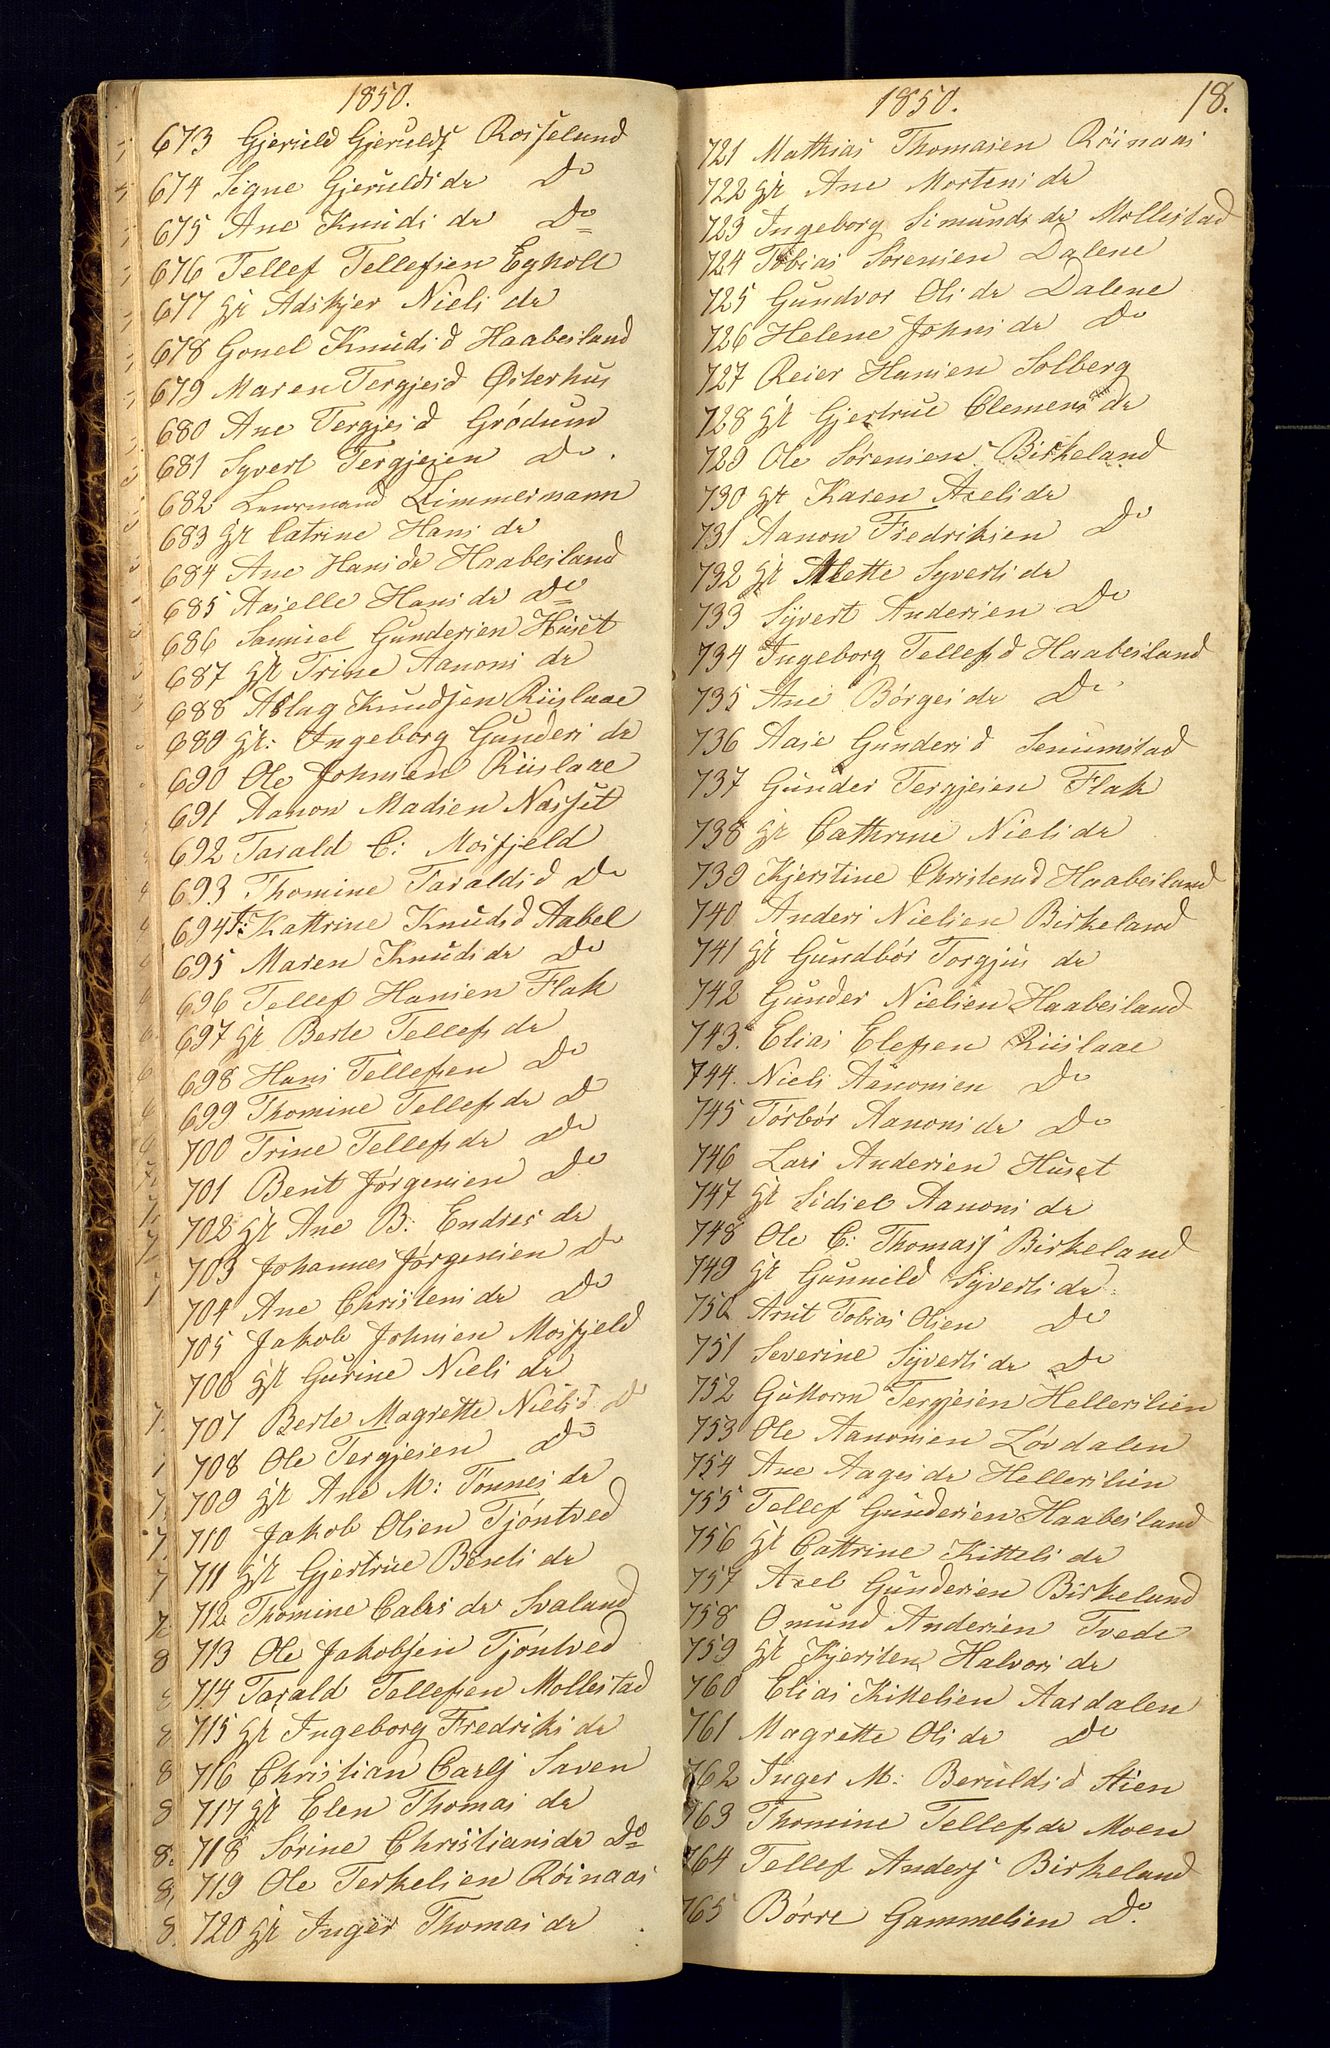 1850.
673 Gjeruld Gjerulds Rosseland
674 Signe Gjerulds dr Do
675 Ane Knuds dr Do
676 Tellef Tellefsen Egholt
677 gt Adskjer Niels dr
678 Gonel Knuds d Haabesland
679 Maren Tergjesd Østerhus
680 Ane Tergjes d Grødum
681 Syvert Tergjesen Do.
682 Lensmand Zimmermann
683 gt Catrine Hans dr
684 Ane Hans dr Haabesland
685 Aaselle Hans dr Do
686 Samuel Gundersen Huset
687 gt Trine Aanons dr
688 Aslag Knudsen Riislaae
689 gt: Ingeborg Gunders dr
690 Ole Johnsen Riislaae
691 Aanon Madsen Næsset
692 Tarald C: Mosfjeld
693 Thomine Taralds d Do
694 F: Kattrine Knudsd Aabel
695 Maren Knuds dr Do
696 Tellef Hansen Flak
697 gt Berte Tellefs dr
698 Hans Tellefsen Do
699 Thomine Tellefs dr D
700 Trine Tellefs dr Do
701 Bent Jørgensen Do
702 gt Ane B. Endres dr
703 Johannes Jørgensen Do
704 Ane Christens dr Do
705 Jakob Johnsen Mosfjeld
706 gt Gurine Niels dr
707 Berte Magrette Niels d D
708 Ole Tergjesen Do
709 gt Ane M: Tønnes dr
710 Jakob Olsen Tjøntved
711 gt Gjertrue Bents dr
712 Thomine Cales dr Svaland
713 Ole Jakobsen Tjøntved
714 Tarald Tellefsen Mollestad
715 gt Ingeborg Fredriks dr
716 Christian Carls Saven
717 gt Elen Thomas dr
718 Sørine Christians dr Do
719 Ole Terkelsen Røinaas
720 gt Inger Thomas dr
1850. 18.
721 Mathias Thomasen Røinaas
722 gt Ane Mortens dr
723 Ingeborg Simunds dr Mollestad
724 Tobias Sørensen Dalene
725 Gundvor Ols dr Dalene
726 Helene Johns dr Do
727 Reier Hansen Solberg
728 gt Gjertrue Clemens dr
729 Ole Sørensen Birkeland
730 gt Karen Axels dr
731 Aanon Fredriksen Do
732 gt Alette Syverts dr
733 Syvert Andersen Do
734 Ingeborg Tellefs d Haabesland
735 Ane Børges dr Do
736 Aase Gunders d Senumstad
737 Gunder Tergjesen Flak
738 gt Cathrine Niels dr
739 Kjerstine Christensd Haabesland
740 Anders Nielsen Birkeland
741 gt Gundbør Torgjus dr
742 Gunder Nielsen Haabesland
743. Elias Elefsen Riislaae
744. Niels Aanonsen Do
745 Torbør Aanons dr Do
746 Lars Andersen Huset
747 gt Sidsel Aanons dr
748 Ole C: Thomass Birkeland
749 gt Gunnild Syverts dr
750 Arnt Tobias Olsen Do
751 Severine Syverts dr Do
752 Guttorm Tergjesen Hellerslien
753 Ole Aanonsen Løvdalen
754 Ane Aages dr Hellerslien
755 Tellef Gundersen Haabesland
756 gt Cattrine Kittels dr
757 Axel Gundersen Birkeland
758 Omund Andersen Tvede
759 gt Kjersten Halvors dr
760 Elias Kittelsen Aardalen
761 Magrette Ols dr Do
762 Inger M: Berulds d Stien
763 Thomine Tellefs dr Moen
764 Tellef Anders Birkeland
765 Børre Gammelsen Do.